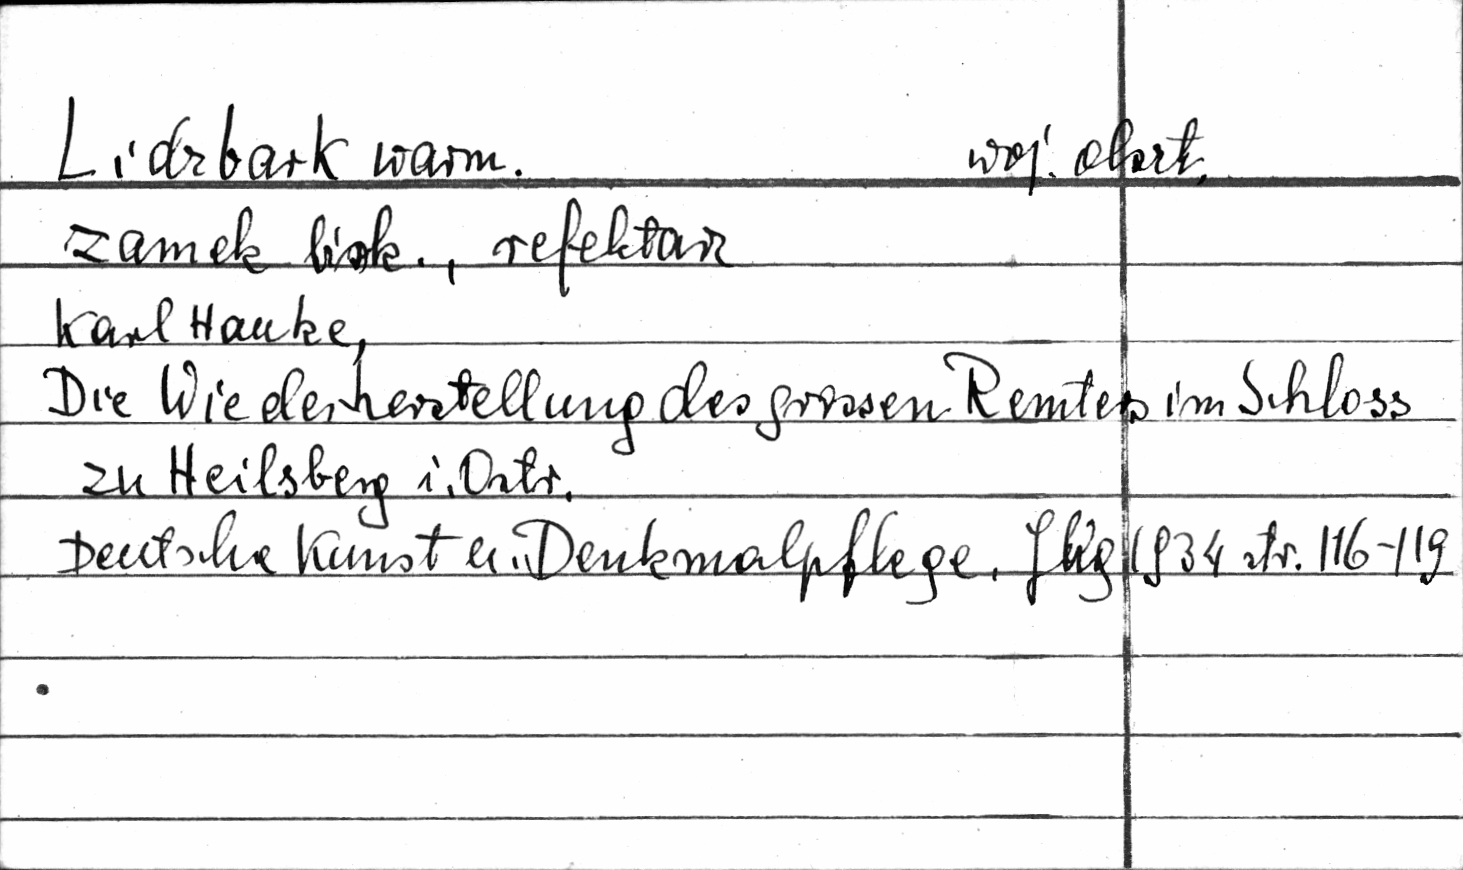 Lidzbark warm. woj. olszt.
zamek bisk., refektarz
Karl Hauke,
Die Wiederherstellung des grossen Remters im Schloss
zu Heilsberg i. Ostr.
Deutsche Kunst u. Denkmalpflege. Jhg 1934 str. 116-119